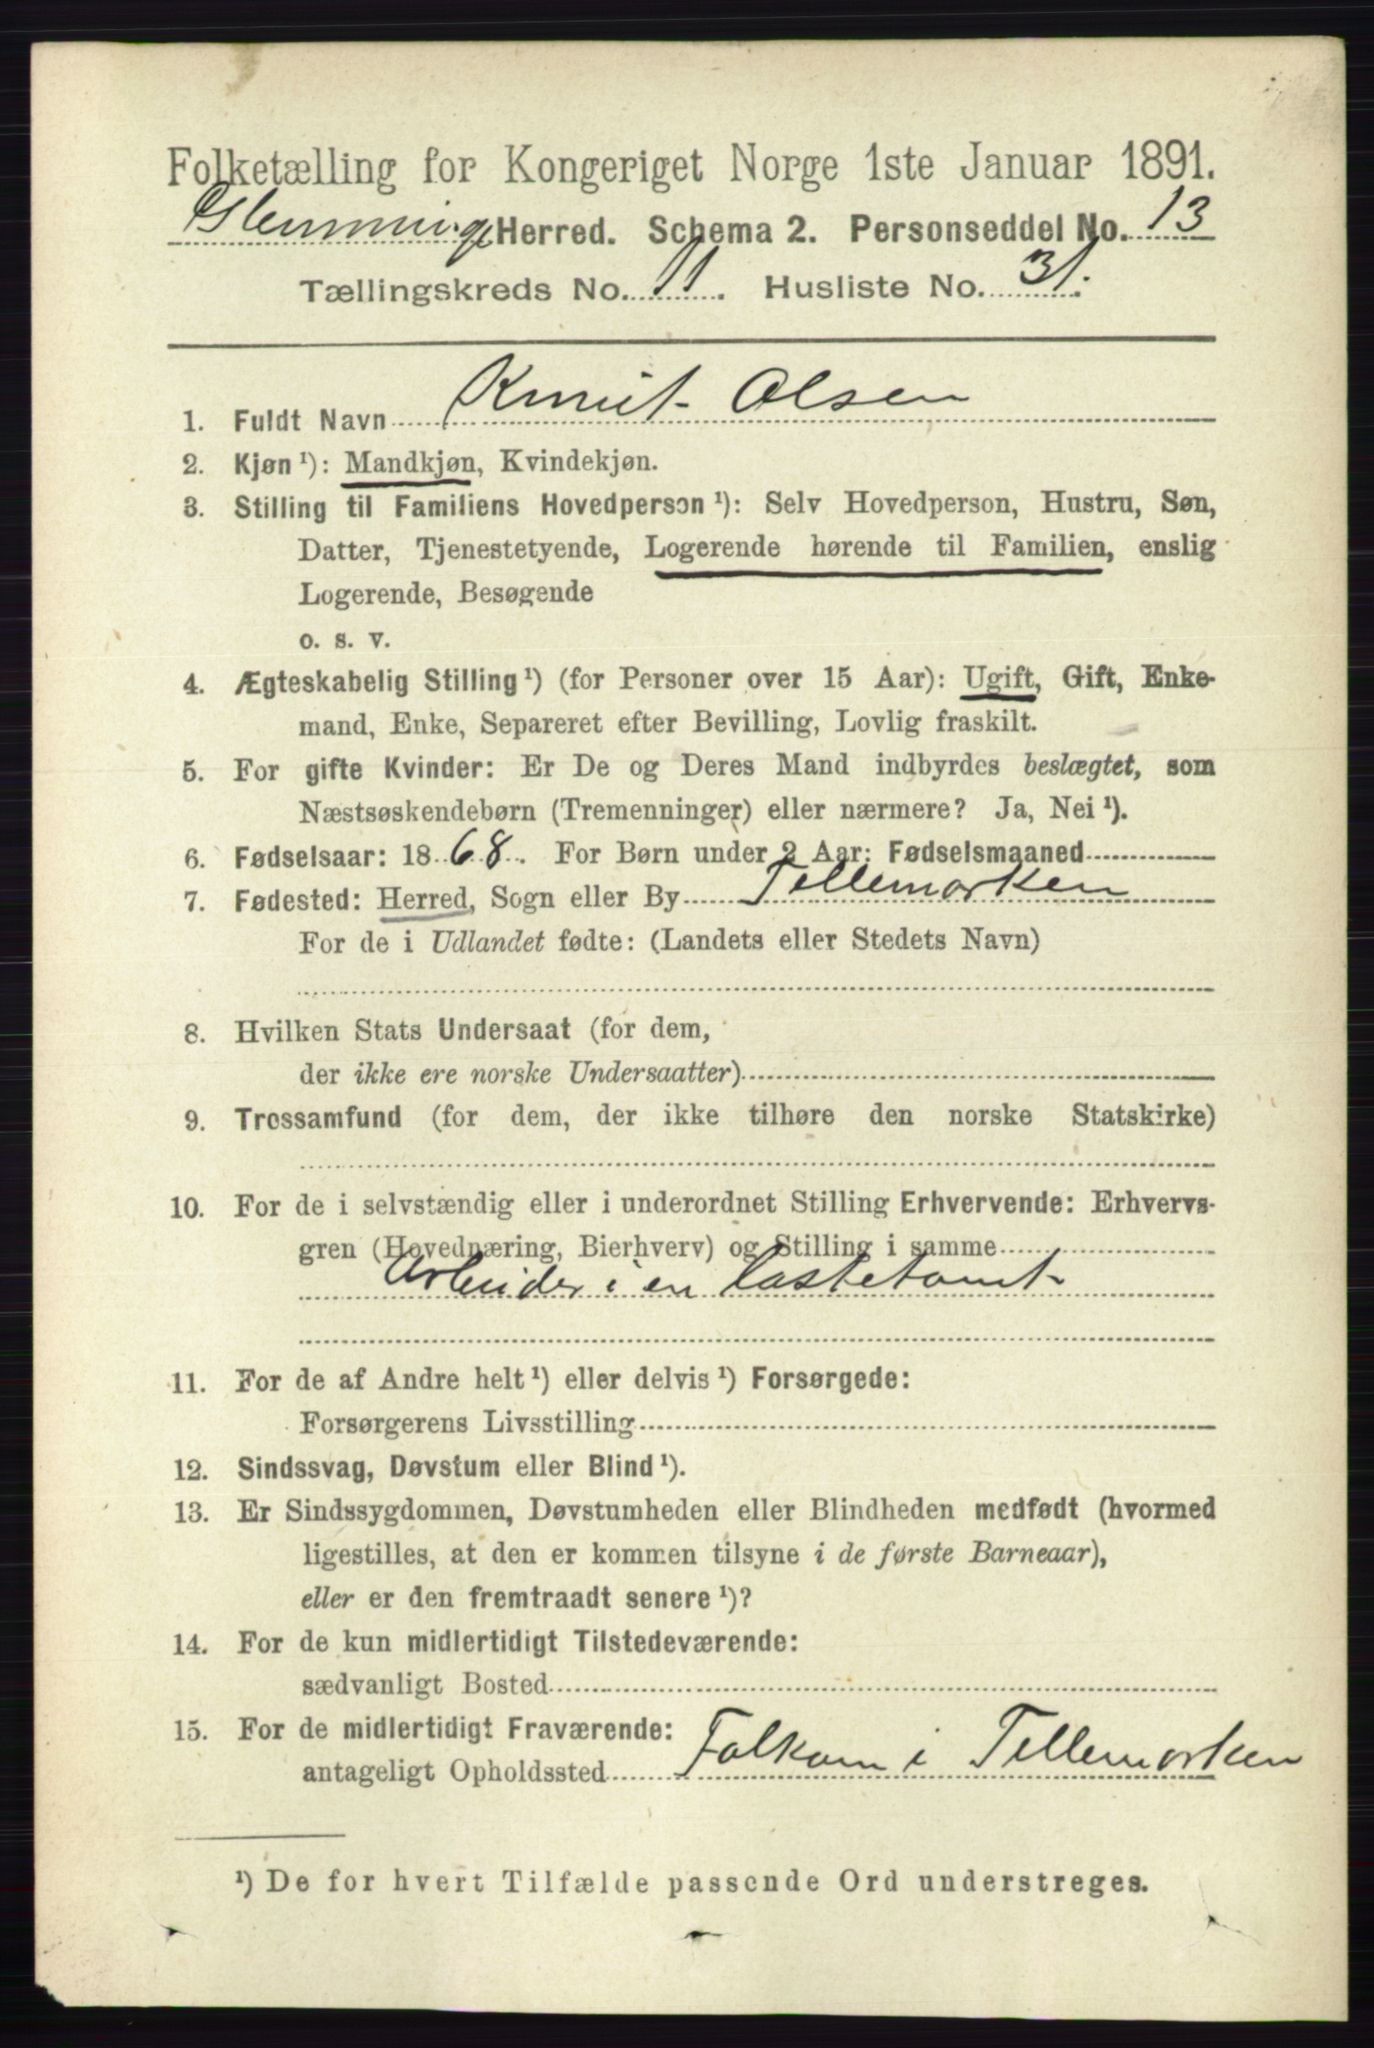 Folketælling for Kongeriget Norge 1ste Januar 1891.
Glemminge Herred. Schema 2. Personseddel No. 13
Tællingskreds No. 11. Husliste No. 31.
1. Fuldt Navn Knut Olsen
2. Kjøn ¹): Mandkjøn, Kvindekjøn.
3. Stilling til Familiens Hovedperson ¹): Selv Hovedperson, Hustru, Søn,
Datter, Tjenestetyende, Logerende hørende til Familien, enslig
Logerende, Besøgende
o. s. v.
4. Ægteskabelig Stilling ¹) (for Personer over 15 Aar): Ugift, Gift, Enke-
mand, Enke, Separeret efter Bevilling, Lovlig fraskilt.
5. For gifte Kvinder: Er De og Deres Mand indbyrdes beslægtet, som
Næstsøskendebørn (Tremenninger) eller nærmere? Ja, Nei ¹).
6. Fødselsaar: 1868. For Børn under 2 Aar: Fødselsmaaned
7. Fødested: Herred, Sogn eller By Tellemarken
For de i Udlandet fødte: (Landets eller Stedets Navn)
8. Hvilken Stats Undersaat (for dem,
der ikke ere norske Undersaatter)
9. Trossamfund (for dem, der ikke tilhøre den norske Statskirke)
10. For de i selvstændig eller i underordnet Stilling Erhvervende: Erhvervs-
gren (Hovednæring, Bierhverv) og Stilling i samme
Arbeider i en lastetomt
11. For de af Andre helt ¹) eller delvis ¹) Forsørgede:
Forsørgerens Livsstilling
12. Sindssvag, Døvstum eller Blind ¹).
13. Er Sindssygdommen, Døvstumheden eller Blindheden medfødt (hvormed
ligestilles, at den er kommen tilsyne i de første Barneaar),
eller er den fremtraadt senere ¹)?
14. For de kun midlertidigt Tilstedeværende:
sædvanligt Bosted
15. For de midlertidigt Fraværende:
antageligt Opholdssted Folkom i Tellemarken
¹) De for hvert Tilfælde passende Ord understreges.